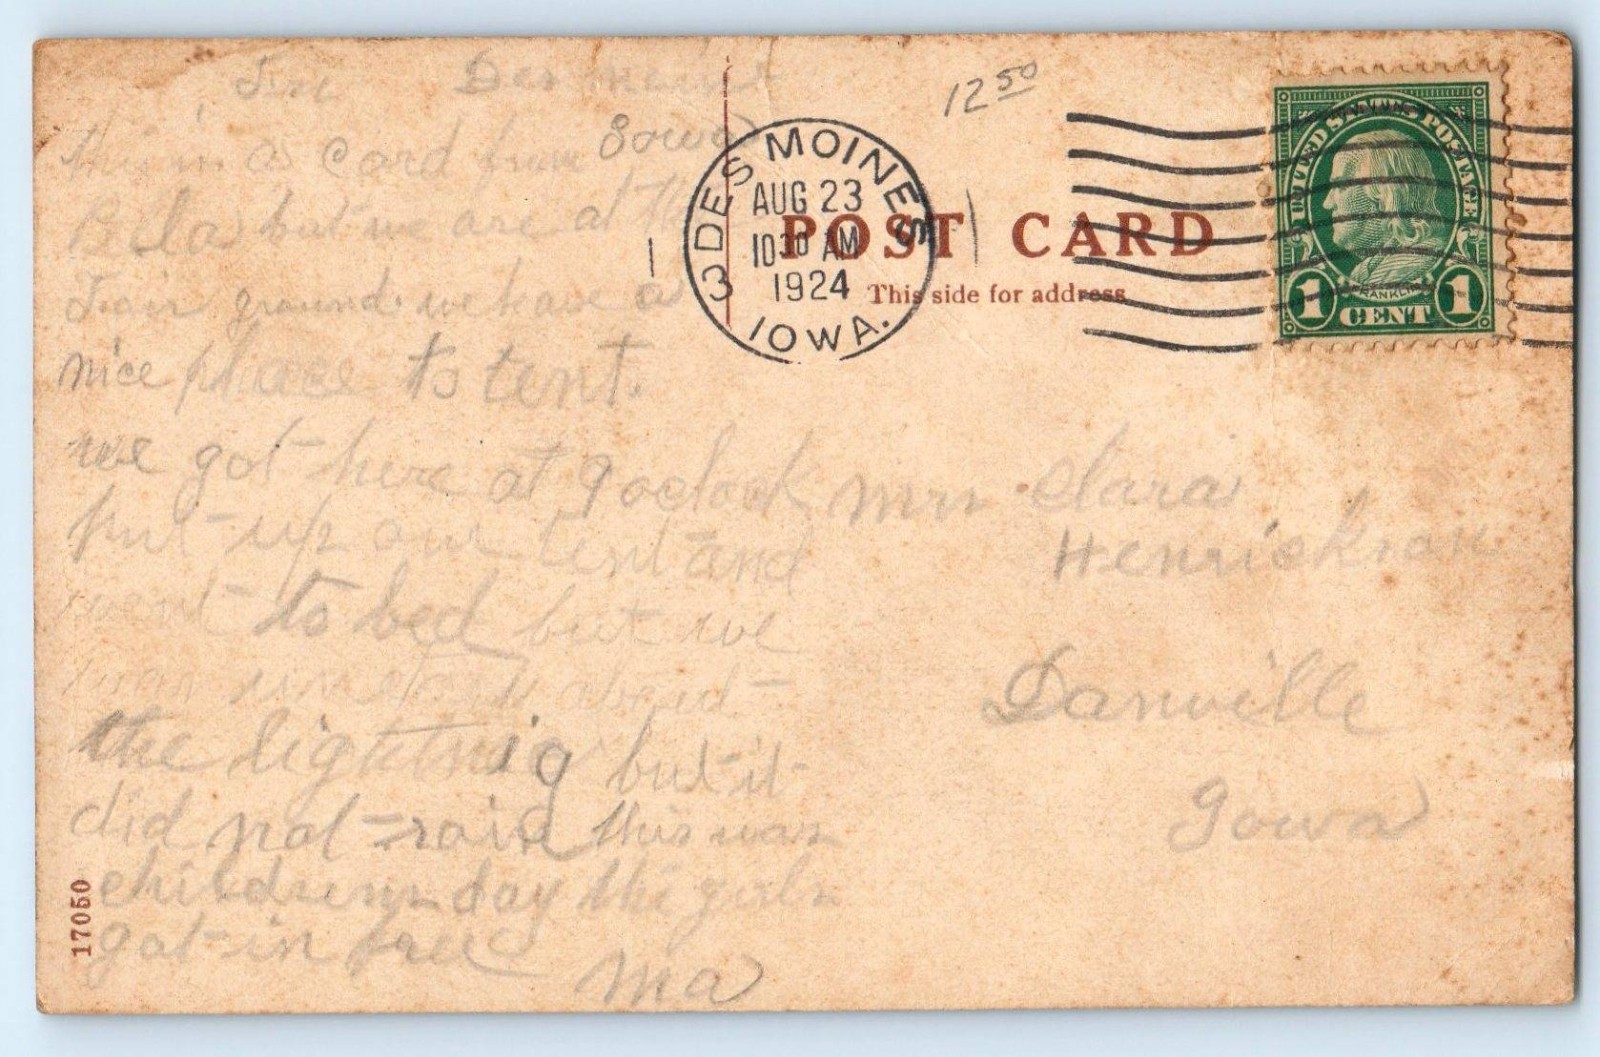 Des Moines
Iowa
this is a card from
Pella but we are at the
Fair ground. we have a
nice place to tent.
we got here at 9 oclock
put up our tent and
went to bed but we
was about
the lightnig but it
did not rain this was
childrens day the girls
got in free
Ma
17050
12 50
3 DES MOINES
IOWA.
AUG 23
10 30 AM
1924
1
POST CARD
This side for address
UNITED STATES POSTAGE
FRANKLIN
1 CENT 1
Mrs Clara
Henrickson
Danville
Iowa